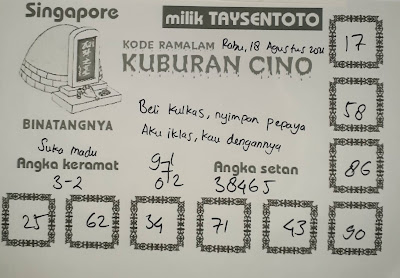 Singapore
milik TAYSENTOTO
KODE RAMALAM Rabu, 18 Agustus 2021
KUBURAN CINO
17
Beli kulkas, nyimpan pepaya
58
BINATANGNYA
Aku iklas, kau dengannya
Suka madu
Angka keramat
Angka setan
86
3-2
38465
25 62 34 71 43 90